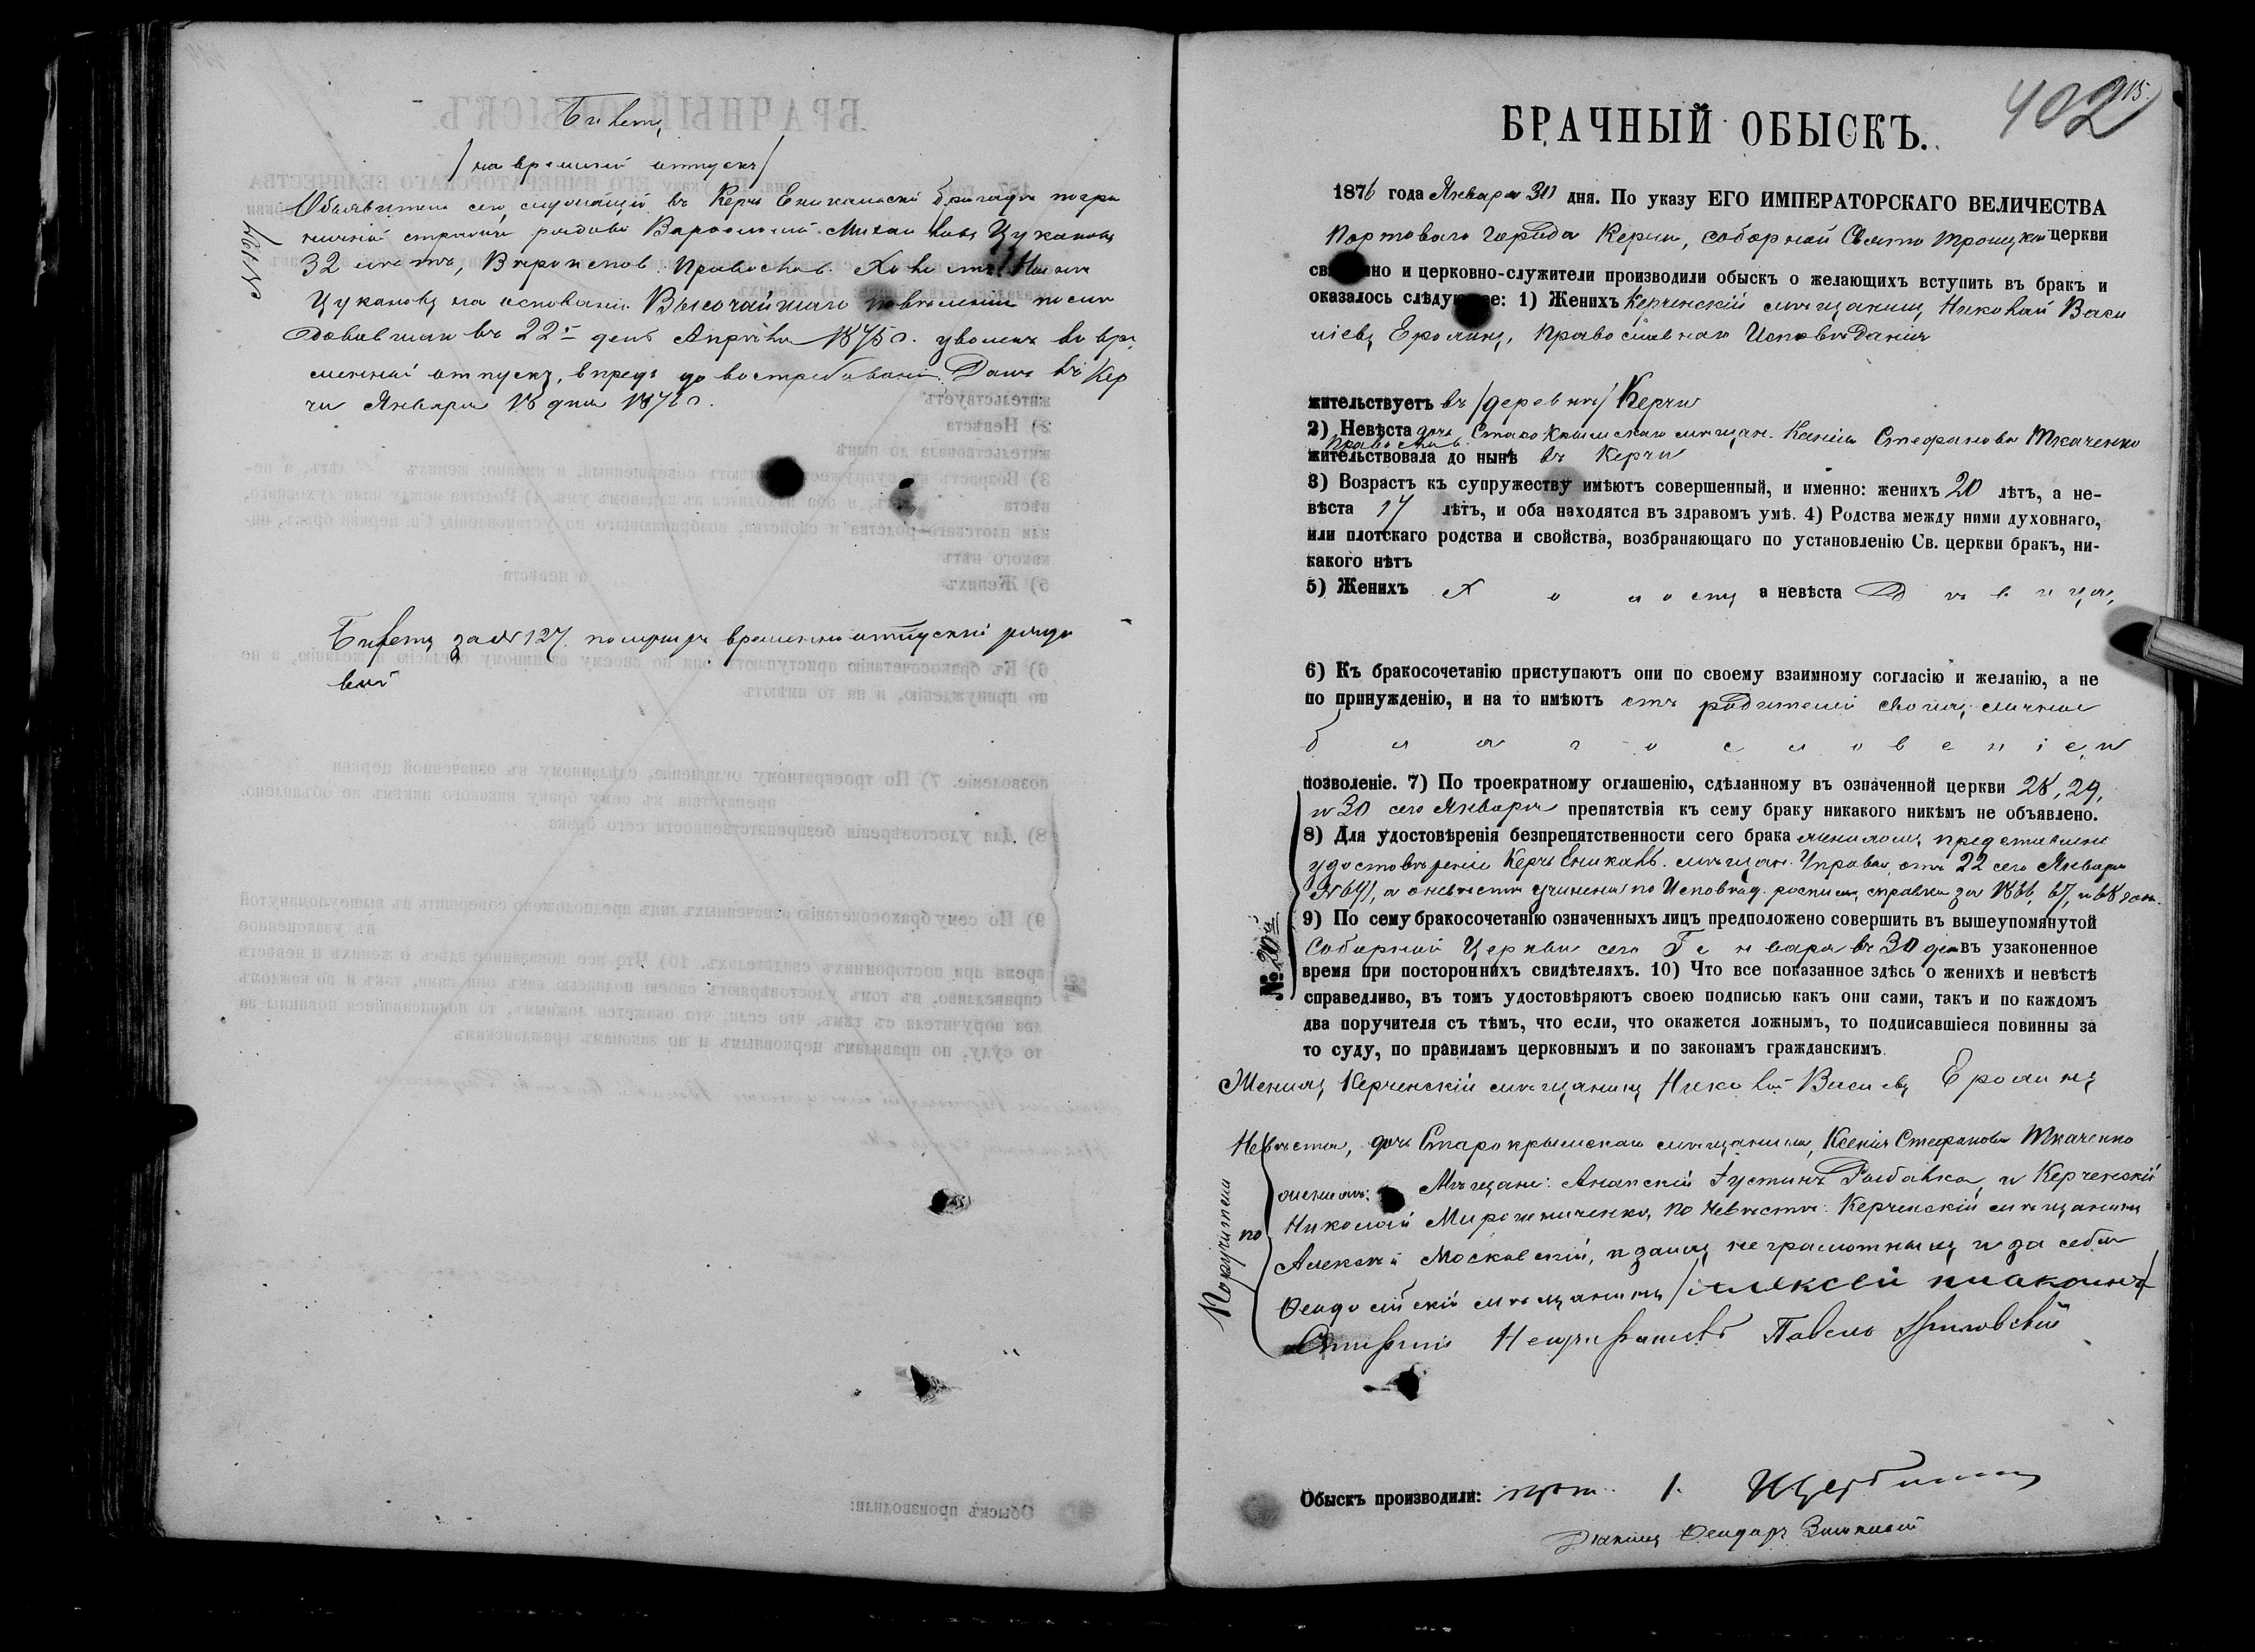 Билетъ
/на времен̃ой отпускъ/
№ 127
32 летъ, Вѣроиспов. Православ. Холостъ
Цукановъ на основанiи Высочайшаго повѣленiя
въ 22-й день Апрѣля 1875 г. уволенъ во вре
менный отпускъ, впредь до востребованiя. Данъ въ Кер
чи Января 18 дня 1876 г.
Билетъ за № 127 получилъ временно отпускной рядо
вой
402
БРАЧНЫЙ ОБЫСКЪ.
1876 года Января 30 дня. По указу ЕГО ИМПЕРАТОРСКАГО ВЕЛИЧЕСТВА
Портоваго города Керчи, соборной Свято Троицкой церкви
но и церковно-служители производили обыскъ о желающихъ вступить въ бракъ и
оказалось слѣдующее: 1) Женихъ Керченскiй мѣщанинъ Николай Васи
лiевъ Ероминъ, Православнаго Исповѣданiя
жительствуетъ въ /деревнѣ/ Керчи
2) Невѣста дочь Старокрымскаго мѣщан. Ксенiя Стефанова Ткаченко
Православ.
жительствовала до нынѣ въ Керчи
3) Возрастъ къ супружеству имѣютъ совершенный, и именно: женихъ 20 лѣтъ, а не-
вѣста 17 лѣтъ, и оба находятся въ здравомъ умѣ. 4) Родства между ними духовнаго,
или плотскаго родства и свойства, возбраняющаго по установленiю Св. церкви бракъ, ни-
какого нѣтъ
5) Женихъ Холостъ а невѣста Дѣвица,
6) Къ бракосочетанiю приступаютъ они по своему взаимному согласiю и желанiю, а не
по принужденiю, и на то имѣютъ отъ родителей своихъ личное
благословенiе, и
позволенiе. 7) По троекратному оглашенiю, сдѣланному въ означенной церкви 28, 29,
и 30 сего Января препятствiя къ сему браку никакого никѣмъ не объявлено.
8) Для удостовѣренiя безпрепятственности сего брака женихомъ представлено
удостовѣренiе Керчь Еникаль. мѣщан. Управы, отъ 22 сего Января
№ 641, а о невѣстѣ учинена по Исповѣд. росписи, справка за 1866, 67, и 68 годы.
9) По сему бракосочетанiю означенныхъ лицъ предположено совершить въ вышеупомянутой
Соборной Церкви сего Генваря въ 30 день въ узаконенное
время при постороннихъ свидѣтеляхъ. 10) Что все показанное здѣсь о женихѣ и невѣстѣ
справедливо, въ томъ удостовѣряютъ своею подписью какъ они сами, такъ и по каждомъ
два поручителя съ тѣмъ, что если, что окажется ложнымъ, то подписавшiеся повинны за
то суду, по правиламъ церковнымъ и по законамъ гражданскимъ.
№ 20й
Женихъ, Керченскiй мѣщанинъ Николай Васильевъ Ероминъ
Невѣста, дочь Старокрымскаго мѣщанина, Ксенiя Стефанова Ткаченко
Поручители по
женихѣ: Мѣщане: Анапскiй Iустинъ Рыбалка, и Керченскiй
Николай Мирошниченко, по Невѣстѣ: Керченскiй мѣщанинъ
Алексѣй Московскiй, и за нихъ неграмотныхъ и за себя
Ѳеодосiйскiй мѣщанинъ
Павелъ
Обыскъ производили: прот. I. Щербина
Дьяконъ Ѳеодоръ